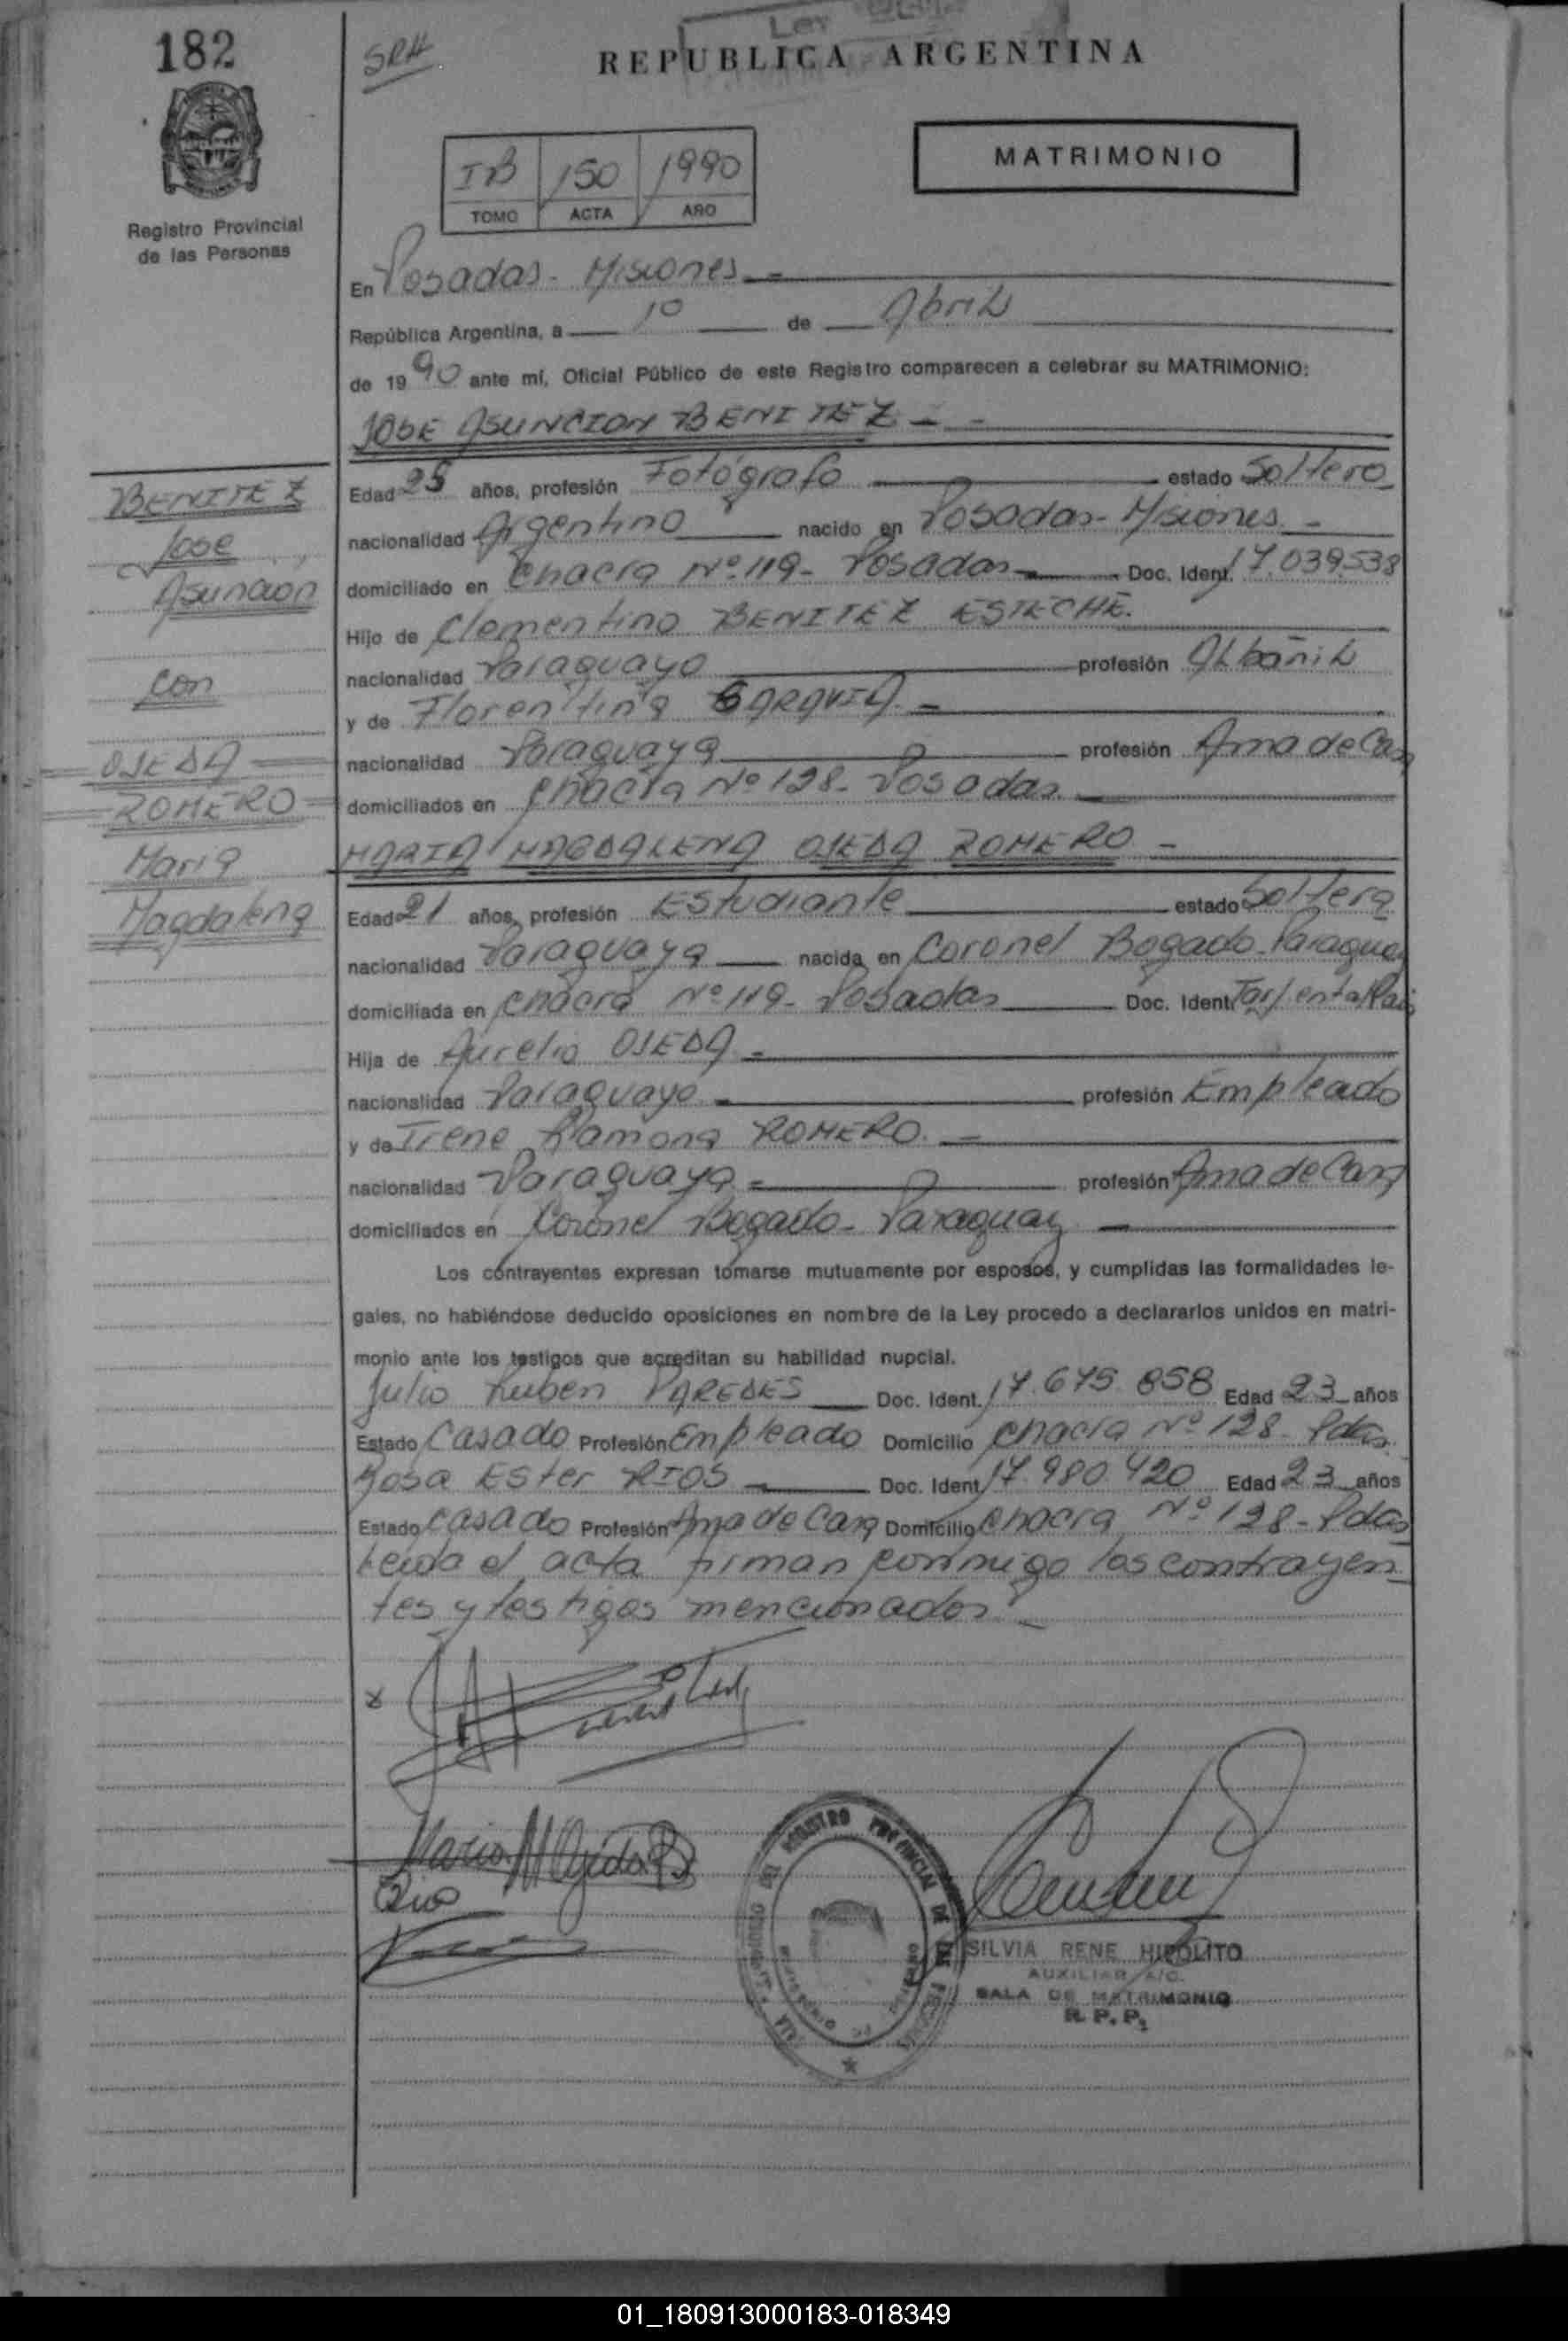 182
SRH
Ley
REPUBLICA ARGENTINA
MATRIMONIO
IB 150 1990
TOMO ACTA AÑO
Registro Provincial
de las Personas
En Posadas - Misiones
República Argentina, a 10 de Abril
de 1990 ante mí, Oficial Público de este Registro comparecen a celebrar su MATRIMONIO:
JOSE ASUNCION BENITEZ
BENITEZ
Jose
Asuncion
con
OJEDA
ROMERO
Maria
Magdalena
Edad 25 años, profesión Fotógrafo estado Soltero
nacionalidad Argentino nacido en Posadas - Misiones
domiciliado en Chacra Nº 119 - Posadas Doc. Ident. 17.039.538
Hijo de Clementino BENITEZ ESTECHE.
nacionalidad Paraguayo profesión Albañil
y de Florentina
nacionalidad Paraguaya profesión Ama de Casa
domiciliados en Chacra Nº 128 - Posadas
MARIA MAGDALENA OJEDA ROMERO
Edad 21 años, profesión Estudiante estado Soltera
nacionalidad Paraguaya nacida en Coronel Bogado - Paraguay
domiciliada en Chacra Nº 119 - Posadas Doc. Ident.
Hija de Aurelio OJEDA
nacionalidad Paraguayo profesión Empleado
y de Irene Ramona ROMERO
nacionalidad Paraguaya profesión Ama de Casa
domiciliados en Coronel Bogado - Paraguay
Los contrayentes expresan tomarse mutuamente por esposos, y cumplidas las formalidades le-
gales, no habiéndose deducido oposiciones en nombre de la Ley procedo a declararlos unidos en matri-
monio ante los testigos que acreditan su habilidad nupcial.
Julio Ruben PAREDES Doc. Ident. 17.675.858 Edad 23 años
Estado Casado Profesión Empleado Domicilio Chacra Nº 128 - Pdas.
Rosa Ester RIOS Doc. Ident. 17.980.420 Edad 23 años
Estado Casado Profesión Ama de Casa Domicilio Chacra Nº 128 - Pdas
Leida el acta firman conmigo los contrayen-
tes y testigos mencionados.
x
Maria M Ojeda R
Rios
REGISTRO PROVINCIAL DE LAS PERSONAS
SILVIA RENE HIPOLITO
AUXILIAR A/C.
SALA DE MATRIMONIO
R. P. P.
01_180913000183-018349